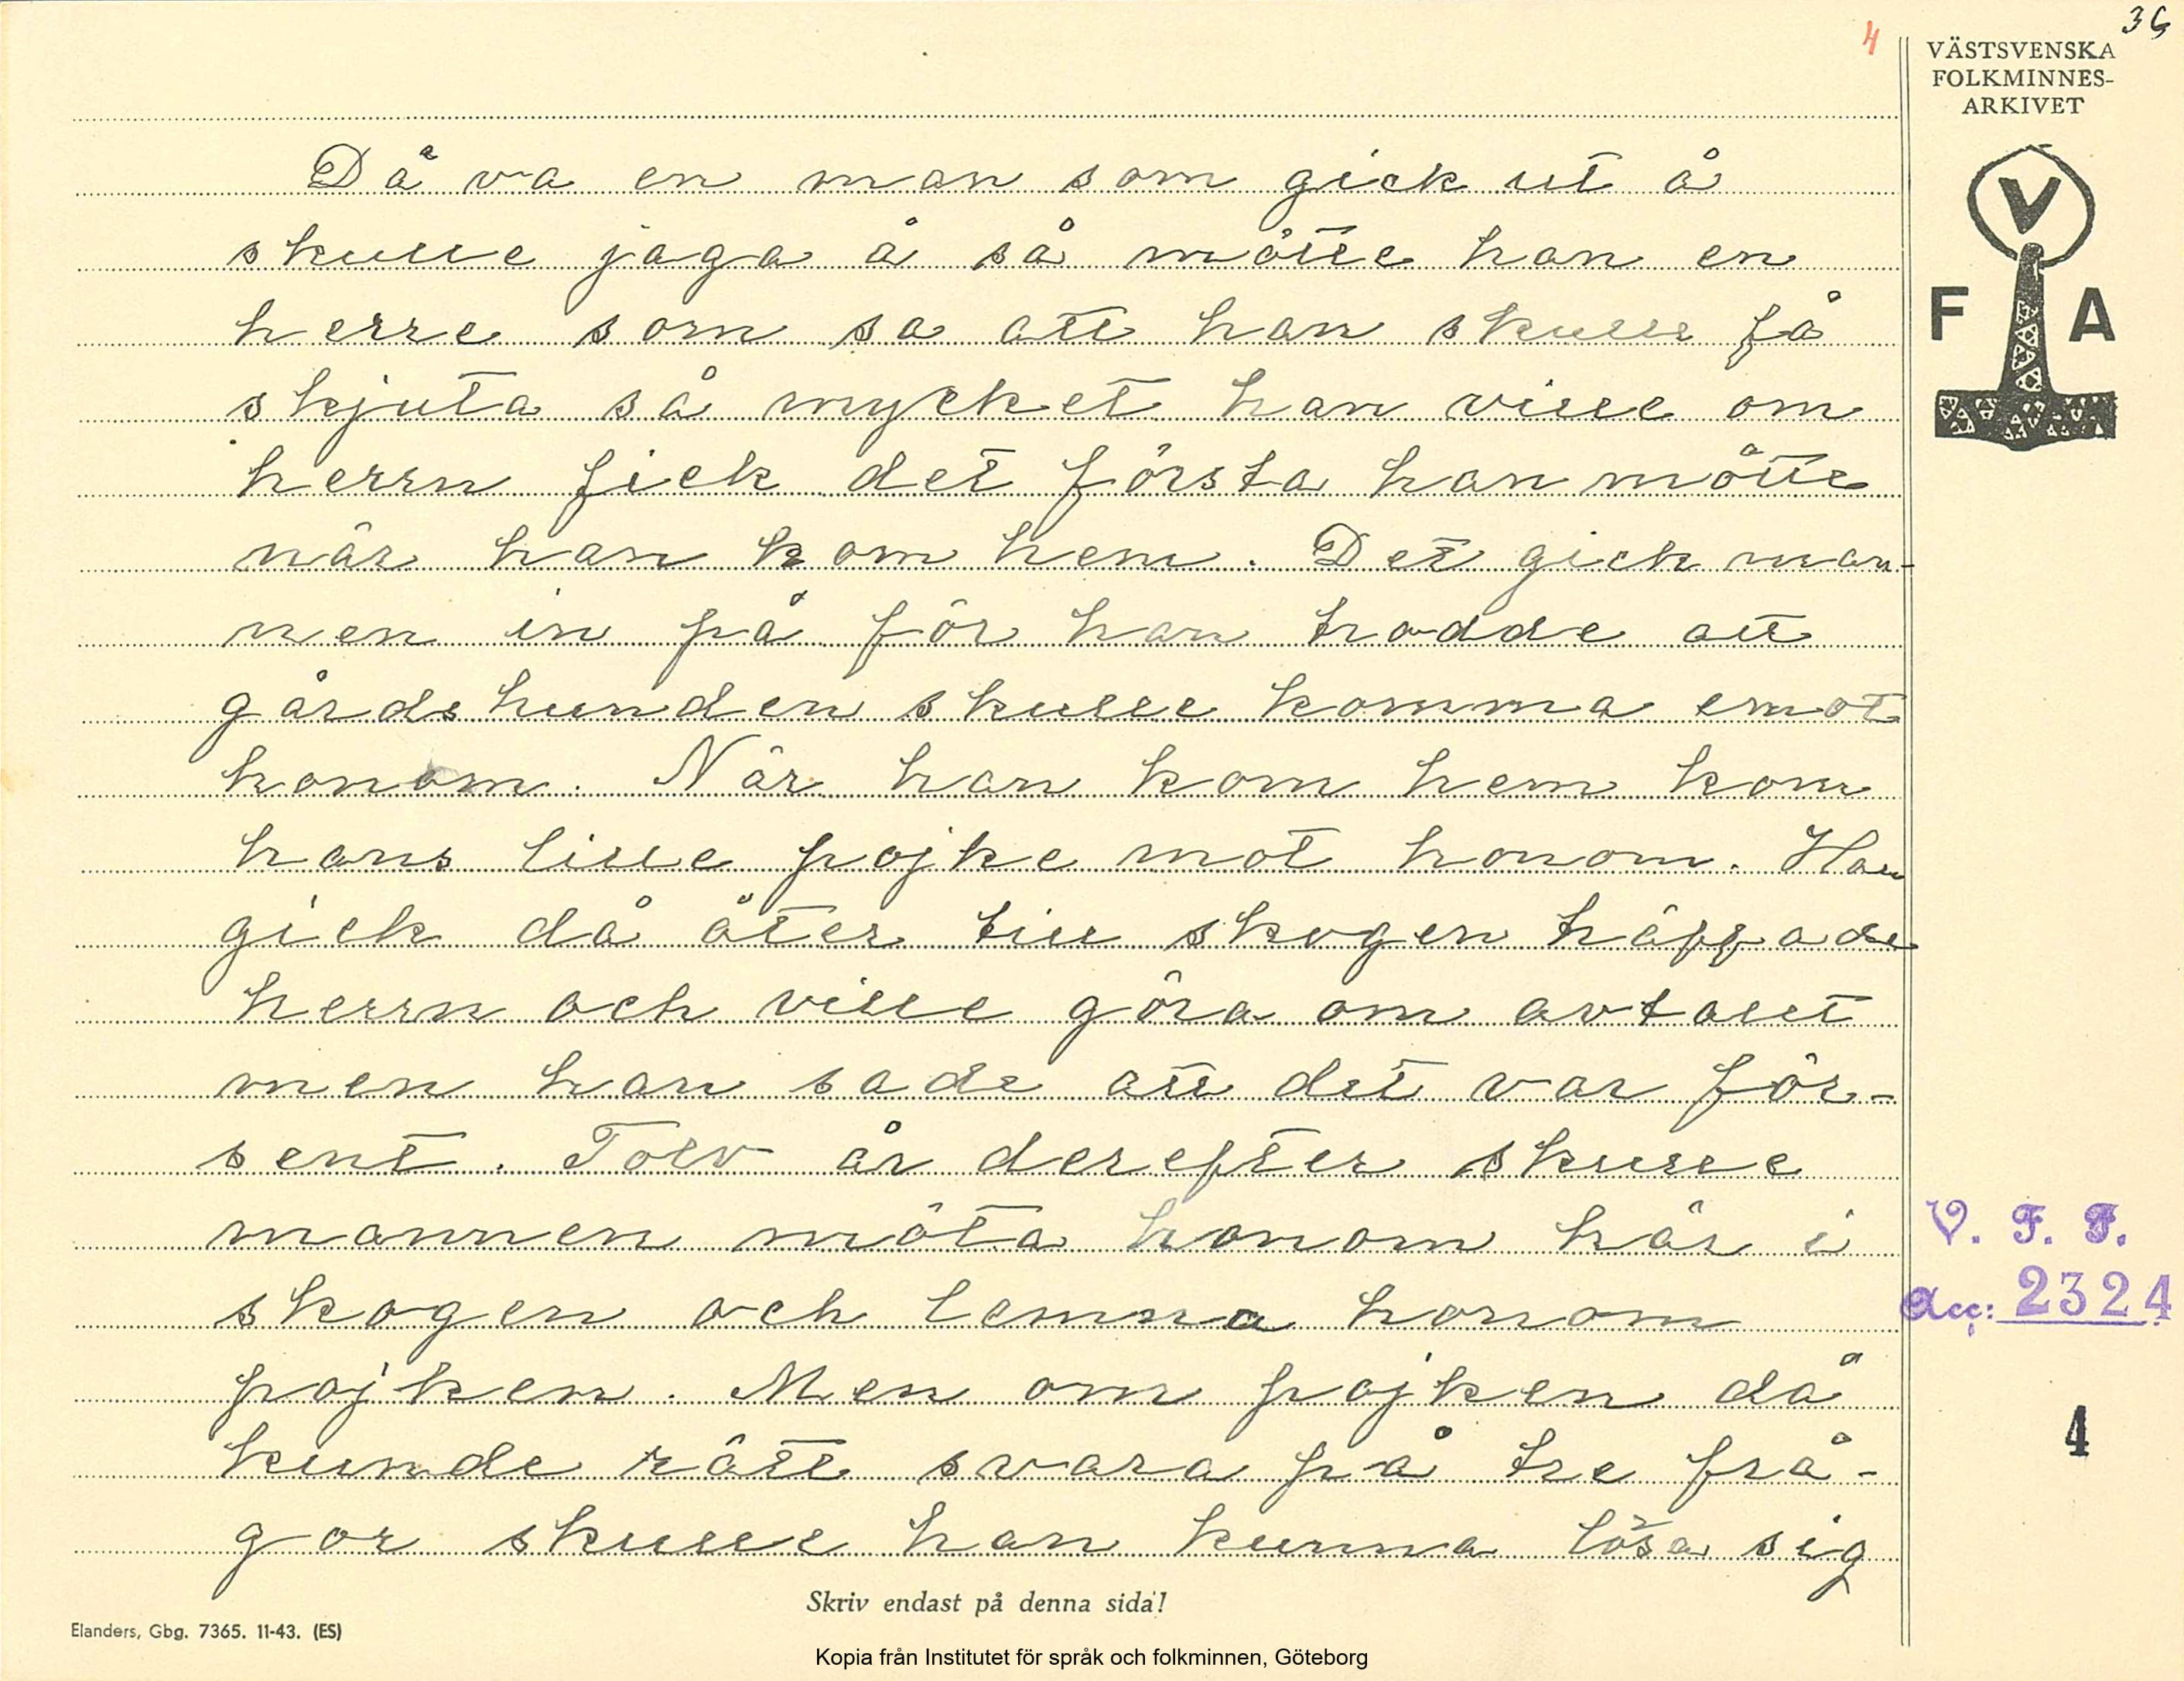 36
4
VÄSTSVENSKA
FOLKMINNES-
ARKIVET
V
F A
Då va en man som gick ut å
skulle jaga å så mötte han en
herre som sa att han skulle få
skjuta så mycket han ville om
herrn fick det första han mötte
när han kom hem. Det gick man-
nen in på för han trodde att
gårdshunden skulle komma emot
honom. När han kom hem kom
hans lille pojke mot honom. Han
gick då åter till skogen träffade
herrn och ville göra om avtalet
men han sade att det var för-
sent. Tolv år derefter skulle
mannen möta honom här i
skogen och lemna honom
pojken. Men om pojken då
kunde rätt svara på tre frå-
gor skulle han kunna lösa sig
V. F. F.
Acc: 2324
4
Skriv endast på denna sida!
Elanders, Gbg. 7365. 11-43. (ES)
Kopia från Institutet för språk och folkminnen, Göteborg